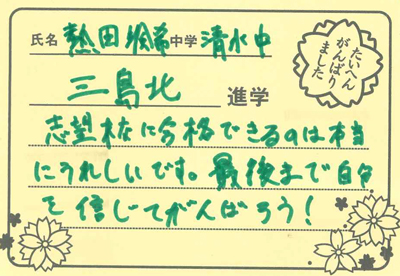 氏名 熱田 中学 清水中
たいへん
がんばり
ました
三島北 進学
志望校に合格できるのは本当
にうれしいです。最後まで自分
を信じてがんばろう！